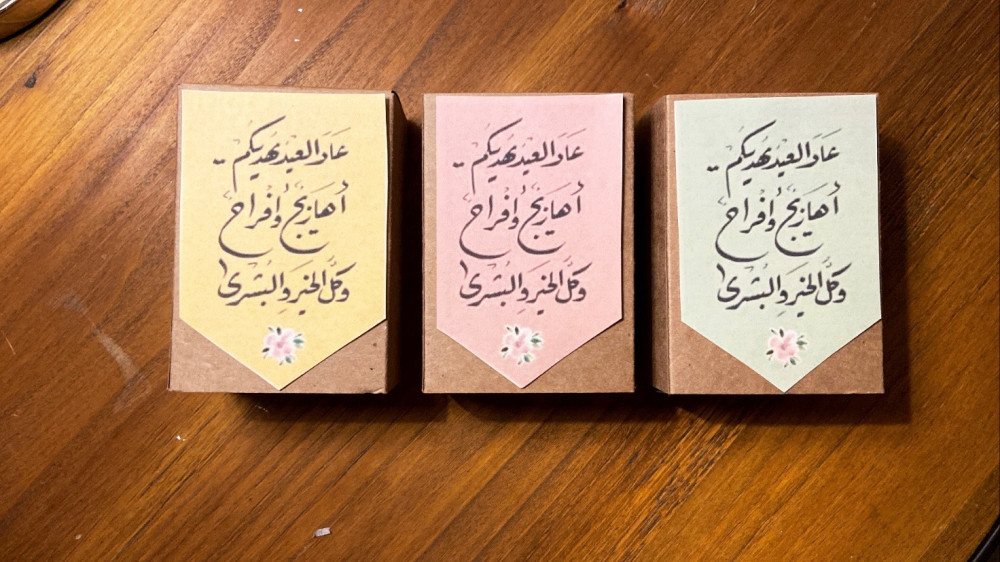 عَادَ العيد يهديكم ..
أهازيجٌ وأفراحٌ
وكلَّ الخيرِ والبُشرى
عَادَ العيد يهديكم ..
أهازيجٌ وأفراحٌ
وكلَّ الخيرِ والبُشرى
عَادَ العيد يهديكم ..
أهازيجٌ وأفراحٌ
وكلَّ الخيرِ والبُشرى